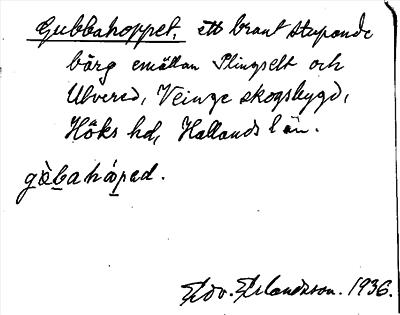 Gubbahoppet, ett brant stupande
bärg emällan Plingselt och
Ulvered, Veinge skogsbygd,
Höks hd, Hallands län.
gòbahòped.
Edv. Erlandsson. 1936.